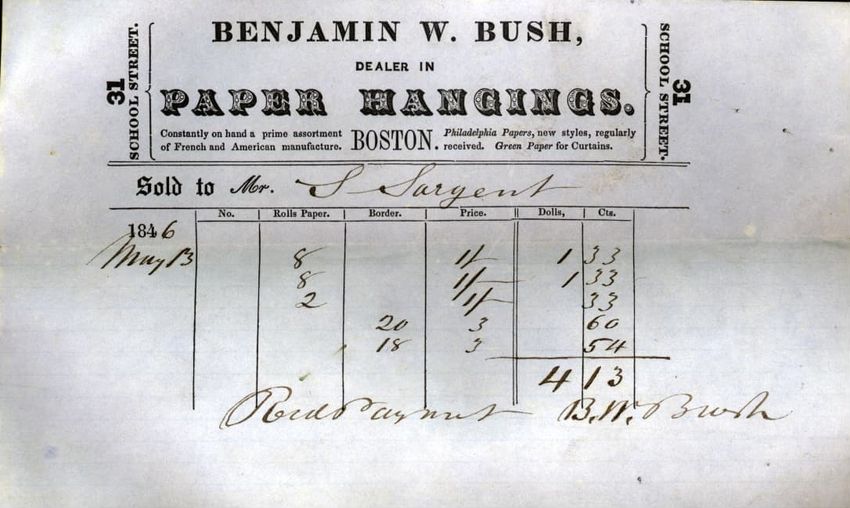 BENJAMIN W. BUSH,
DEALER IN
PAPER HANGINGS.
31
SCHOOL STREET.
Constantly on hand a prime assortment
of French and American manufacture.
BOSTON.
Philadelphia Papers, new styles, regularly
received. Green Paper for Curtains.
SCHOOL STREET.
31
Sold to Mr. S Sargent
No. Rolls Paper. Border. Price. Dolls, Cts.
1846
May 13 8 1/ 1 33
8 1/ 1 33
2 1/ 33
20 3 60
18 3 54
4 13
Recd Payment B. W. Bush